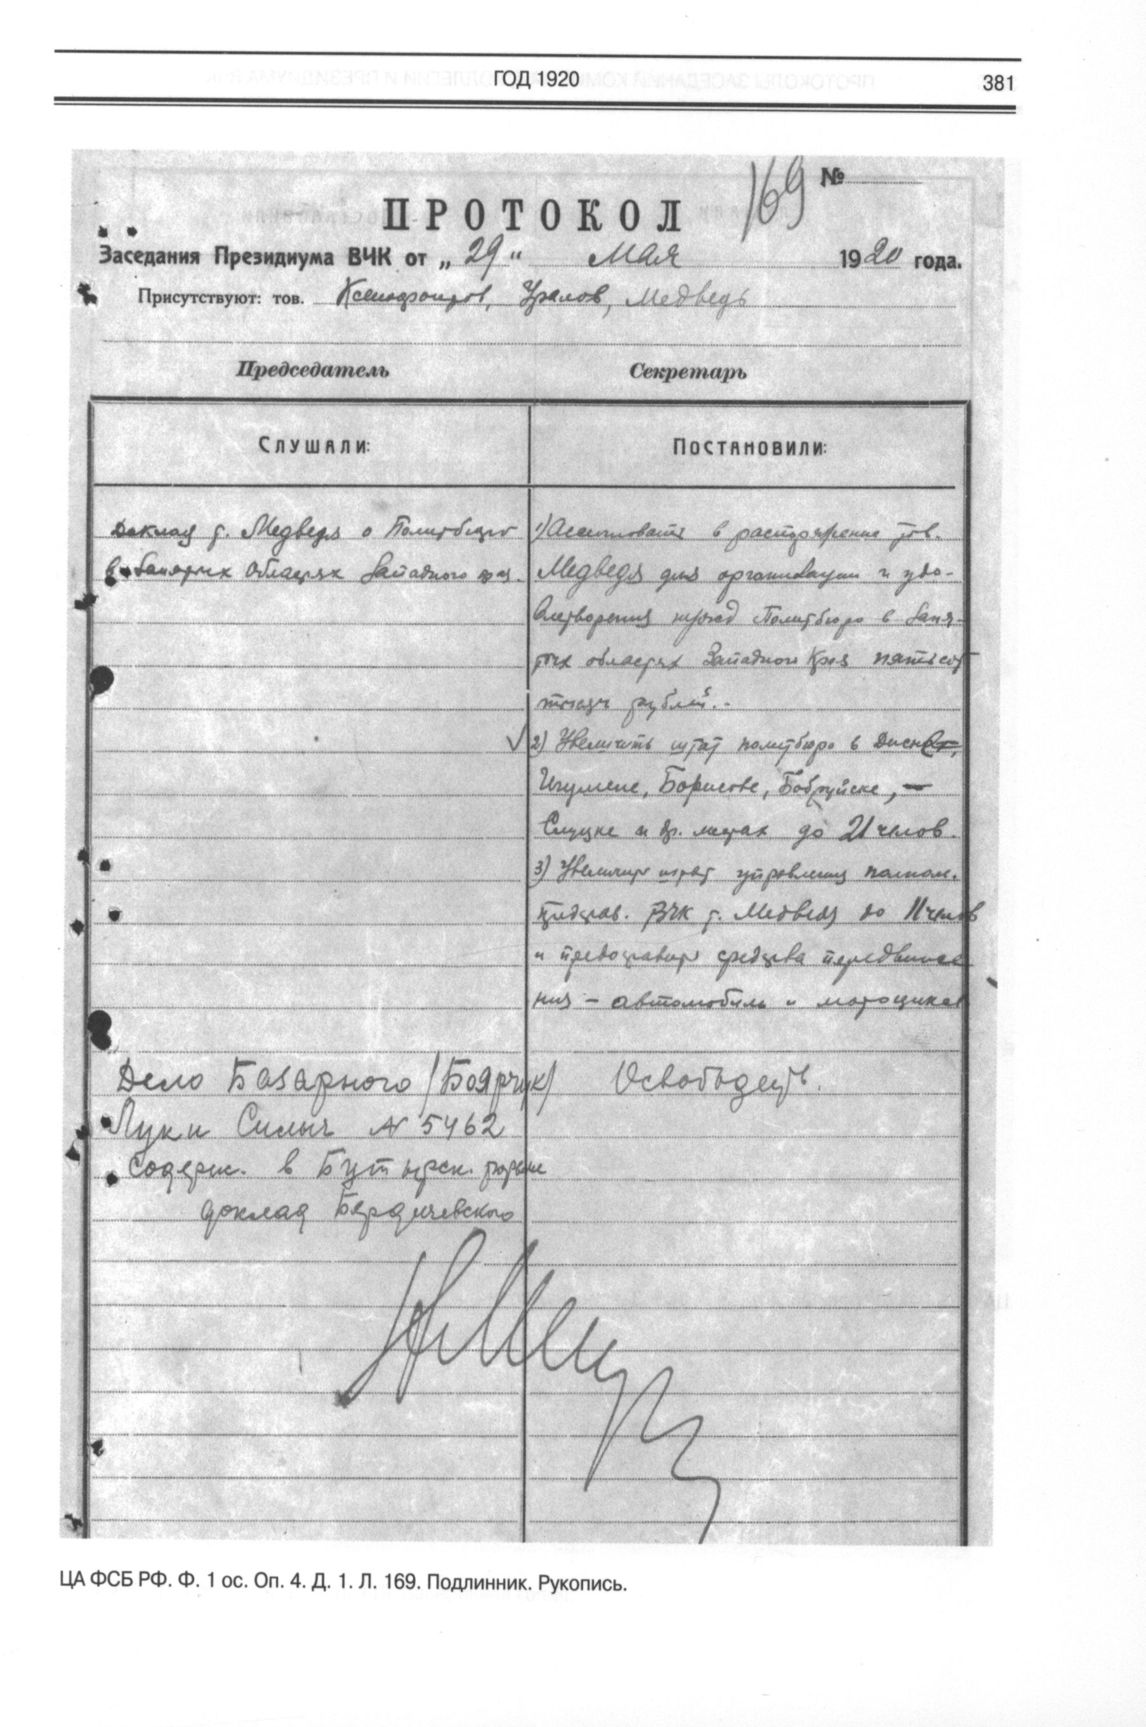 ГОД 1920
381
169
№
ПРОТОКОЛ
Заседания Президиума ВЧК от „ 29 “ Мая 1920 года.
Присутствуют: тов. Ксенофонтов, Уралов, Медведь
Председатель
Секретарь
СЛУШАЛИ:
Доклад т. Медведя о Политбюро
в занятых областях Западного края.
ПОСТАНОВИЛИ:
1) Ассигновать в распоряжение тов.
Медведя для организации и удо-
влетворения нужд Политбюро в заня-
тых областях Западного Края пятьсот
тысяч рублей.
2) Увеличить штат политбюро в
Игумене, Борисове, Бобруйске, –
Слуцке и др. местах до 21 челов.
3) Увеличить штат управления полном.
представ. ВЧК т. Медведя до 11 челов
и предоставить средства передвиже
ния – автомобиль и мотоцикл
Дело Базарного /Боярчук/
Луки Силыч № 5462
содерж. в Бутырск. тюрьме
доклад Бердичевского
Освободить.
ЦА ФСБ РФ. Ф. 1 ос. Оп. 4. Д. 1. Л. 169. Подлинник. Рукопись.